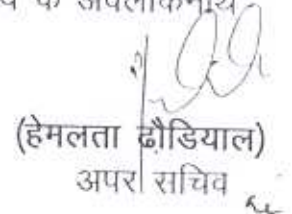 के अवलोकनार्थ
(हेमलता ढौडियाल)
अपर सचिव